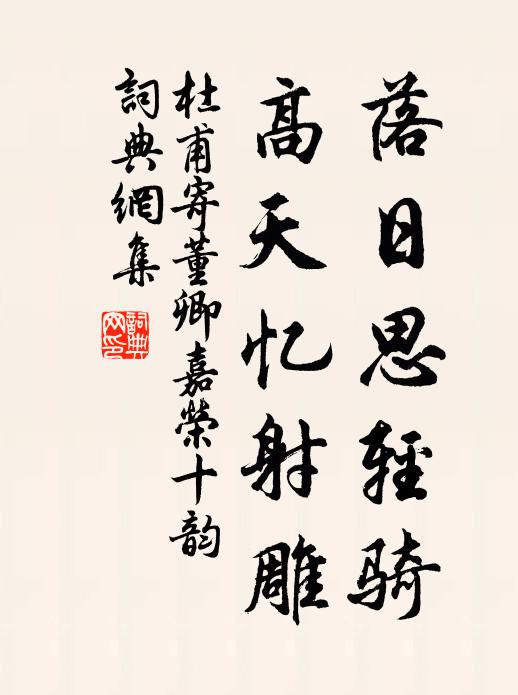 落日思輕骑
高天忆射雕
杜甫寄董卿嘉榮十韵
詞典網集
詞典网印